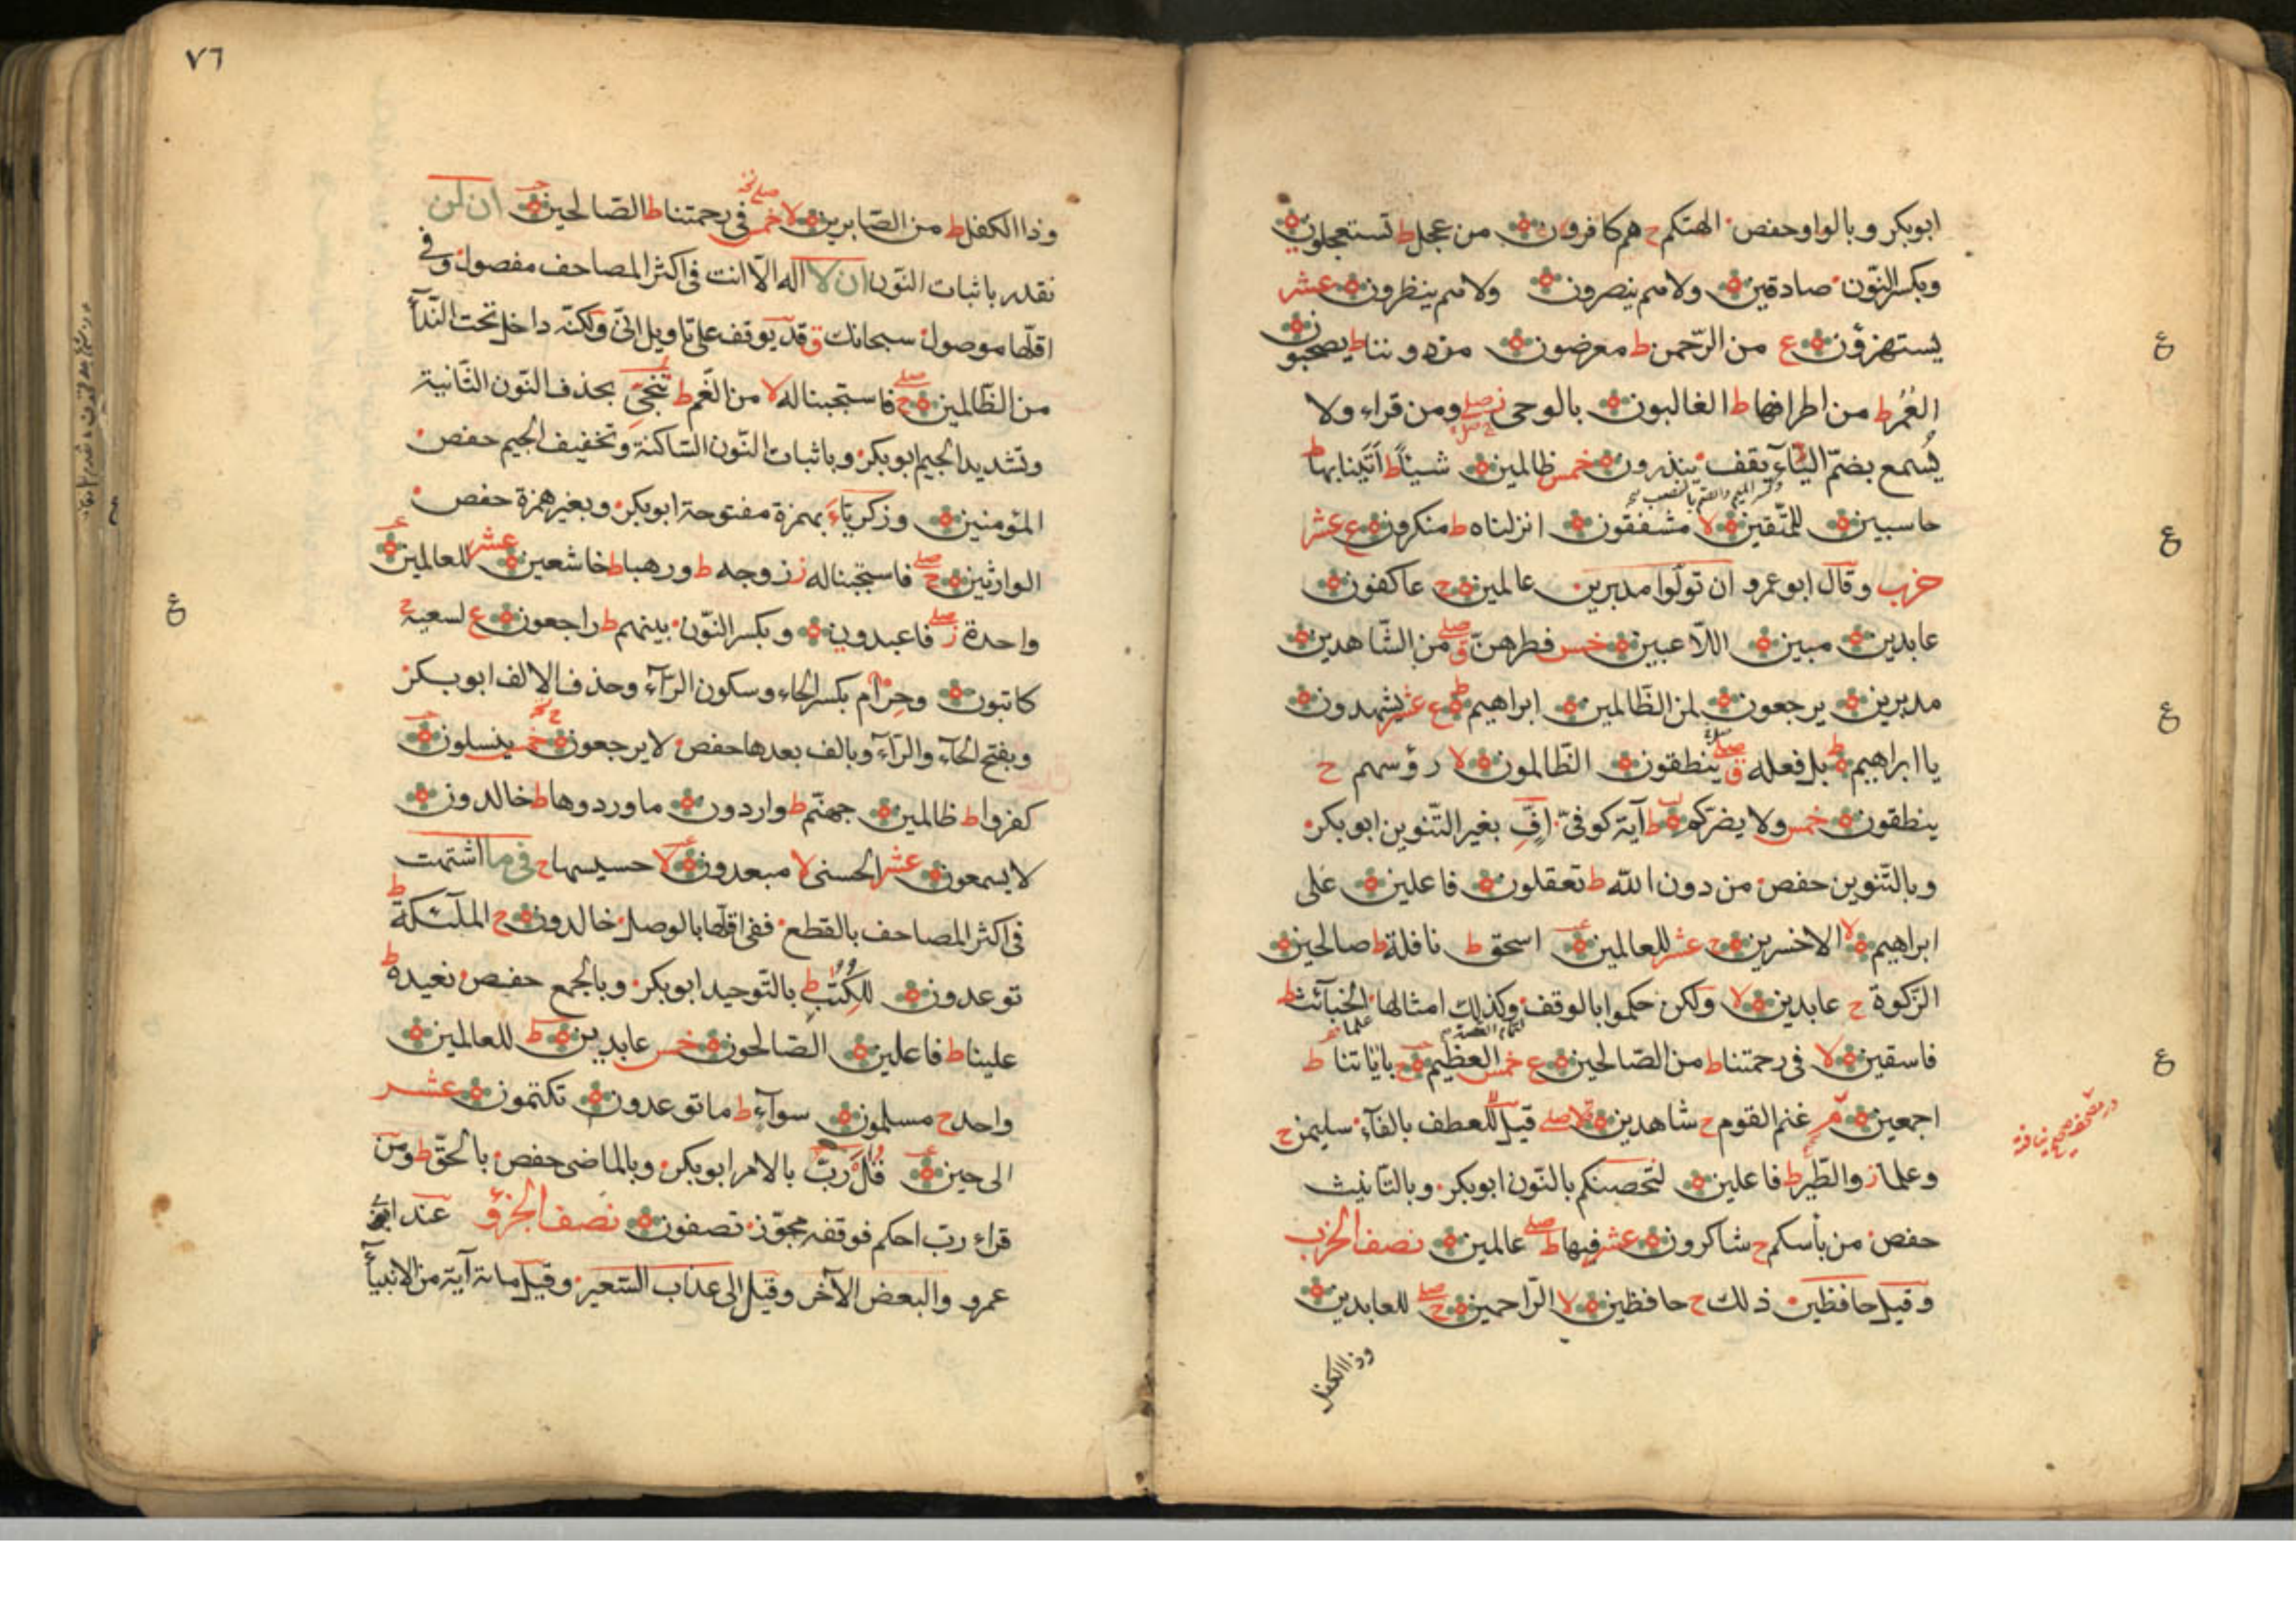 ابوبكر وبالواو حفص الهتكم ح هم كافرون من عجل ط تستعجلون
وبكسر النّون صادقين ولا هم ينصرون ولا هم ينظرون عشر
يستهزؤن ع من الرّحمن ط معرضون من دوننا ط يصحبون
العُمُر ط من اطرافها ط الغالبون بالوحى ز صلى ومن قراء ولا
يُسمع بضمّ اليّاء يقف ينذرون خمس ظالمين شيئاً ط أتَينا بها ط
حاسبين للمتّقين لا مشفقون انزلناه ط منكرون ع عشر
حزب وقال ابو عمرو ان تولّوا مدبرين عالمين ح عاكفون
عابدين مبين اللّاعبين خمس فطرهنّ ق صلى من الشّاهدين
مدبرين يرجعون لمن الظّالمين ابراهيم ط ع عشر يشهدون
يا ابراهيم ط بل فعله ق صلى ينطقون الظّالمون لا رؤسهم ح
ينطقون خمس ولا يضرّكم ط آية كوفىّ افِّ بغير التّنوين ابوبكر
وبالتّنوين حفص من دون الله ط تعقلون فاعلين على
ابراهيم لا الاخسرين ح عشر للعالمين اسحق ط نافلة ط صالحين
الزّكوة ح عابدين لا ولكن حكموا بالوقف وكذلك امثالها الخبآئث ط
فاسقين لا فى رحمتنا ط من الصّالحين ع خمس العظيم ح بآياتنا ط
اجمعين غنم القوم ح شاهدين لا صلى قيل للعطف بالفآء سليمن ح
وعلما ز والطّير ط فاعلين لنحصنكم بالنّون ابوبكر وبالتّانيث
حفص من بأسكم ح شاكرون عشر فيها ط صلى عالمين نصف الحزب
وقيل حافظين ذلك ح حافظين لا الرّاحمين ح صلى للعابدين
وذا الكفل
٧٦
وذا الكفل ط من الصّابرين لا خمس فى رحمتنا ط الصّالحين ان لن
نقدر باثبات النّون ان لا اله الّا انت فى اكثر المصاحف مفصول وفى
اقلّها موصول سبحانك ق قد يوقف على تاويل انّى ولكنّه داخل تحت النّدآء
من الظّالمين ح صلى فاستجبنا له لا من الغّم ط نُجّى بحذف النّون الثّانية
وتشديد الجيم ابوبكر وباثبات النّون السّاكنة وتخفيف الجيم حفص
المؤمنين وزكريّاءَ بهمزة مفتوحة ابوبكر وبغير همزة حفص
الوارثين ح صلى فاستجبنا له ز زوجه ط ورهبا ط خاشعين عشر للعالمين
واحدة ز صلى فاعبدون وبكسر النّون بينهم ط راجعون ع لسعيه ح
كاتبون وحِرْام بكسر الحاء وسكون الرّآء وحذف الالف ابوبكر
وبفتح الحآء والرّآء وبالف بعدها حفص لا يرجعون خمس ينسلون
كفروا ط ظالمين جهنّم ط واردون ما وردوها ط خالدون
لا يسمعون عشر الحسنى لا مبعدون لا حسيسها ح فى ما اشتهت
فى اكثر المصاحف بالقطع ففى اقلّها بالوصل خالدون ح الملآئكة ط
توعدون للكتب ط بالتّوحيد ابوبكر وبالجمع حفص نعيده ط
علينا ط فاعلين الصّالحون خمس عابدين ط للعالمين
واحد ح مسلمون سوآء ط ما توعدون تكتمون عشر
الى حين قُل ربّ بالامر ابوبكر وبالماضى حفص بالحقّ ط ومن
قراء ربّ احكم فوقفه مجوّز تصفون نصف الجزؤ عند ابى
عمرو والبعض الآخر وقيل الى عذاب السّعير وقيل مائة آية من الانبيآء